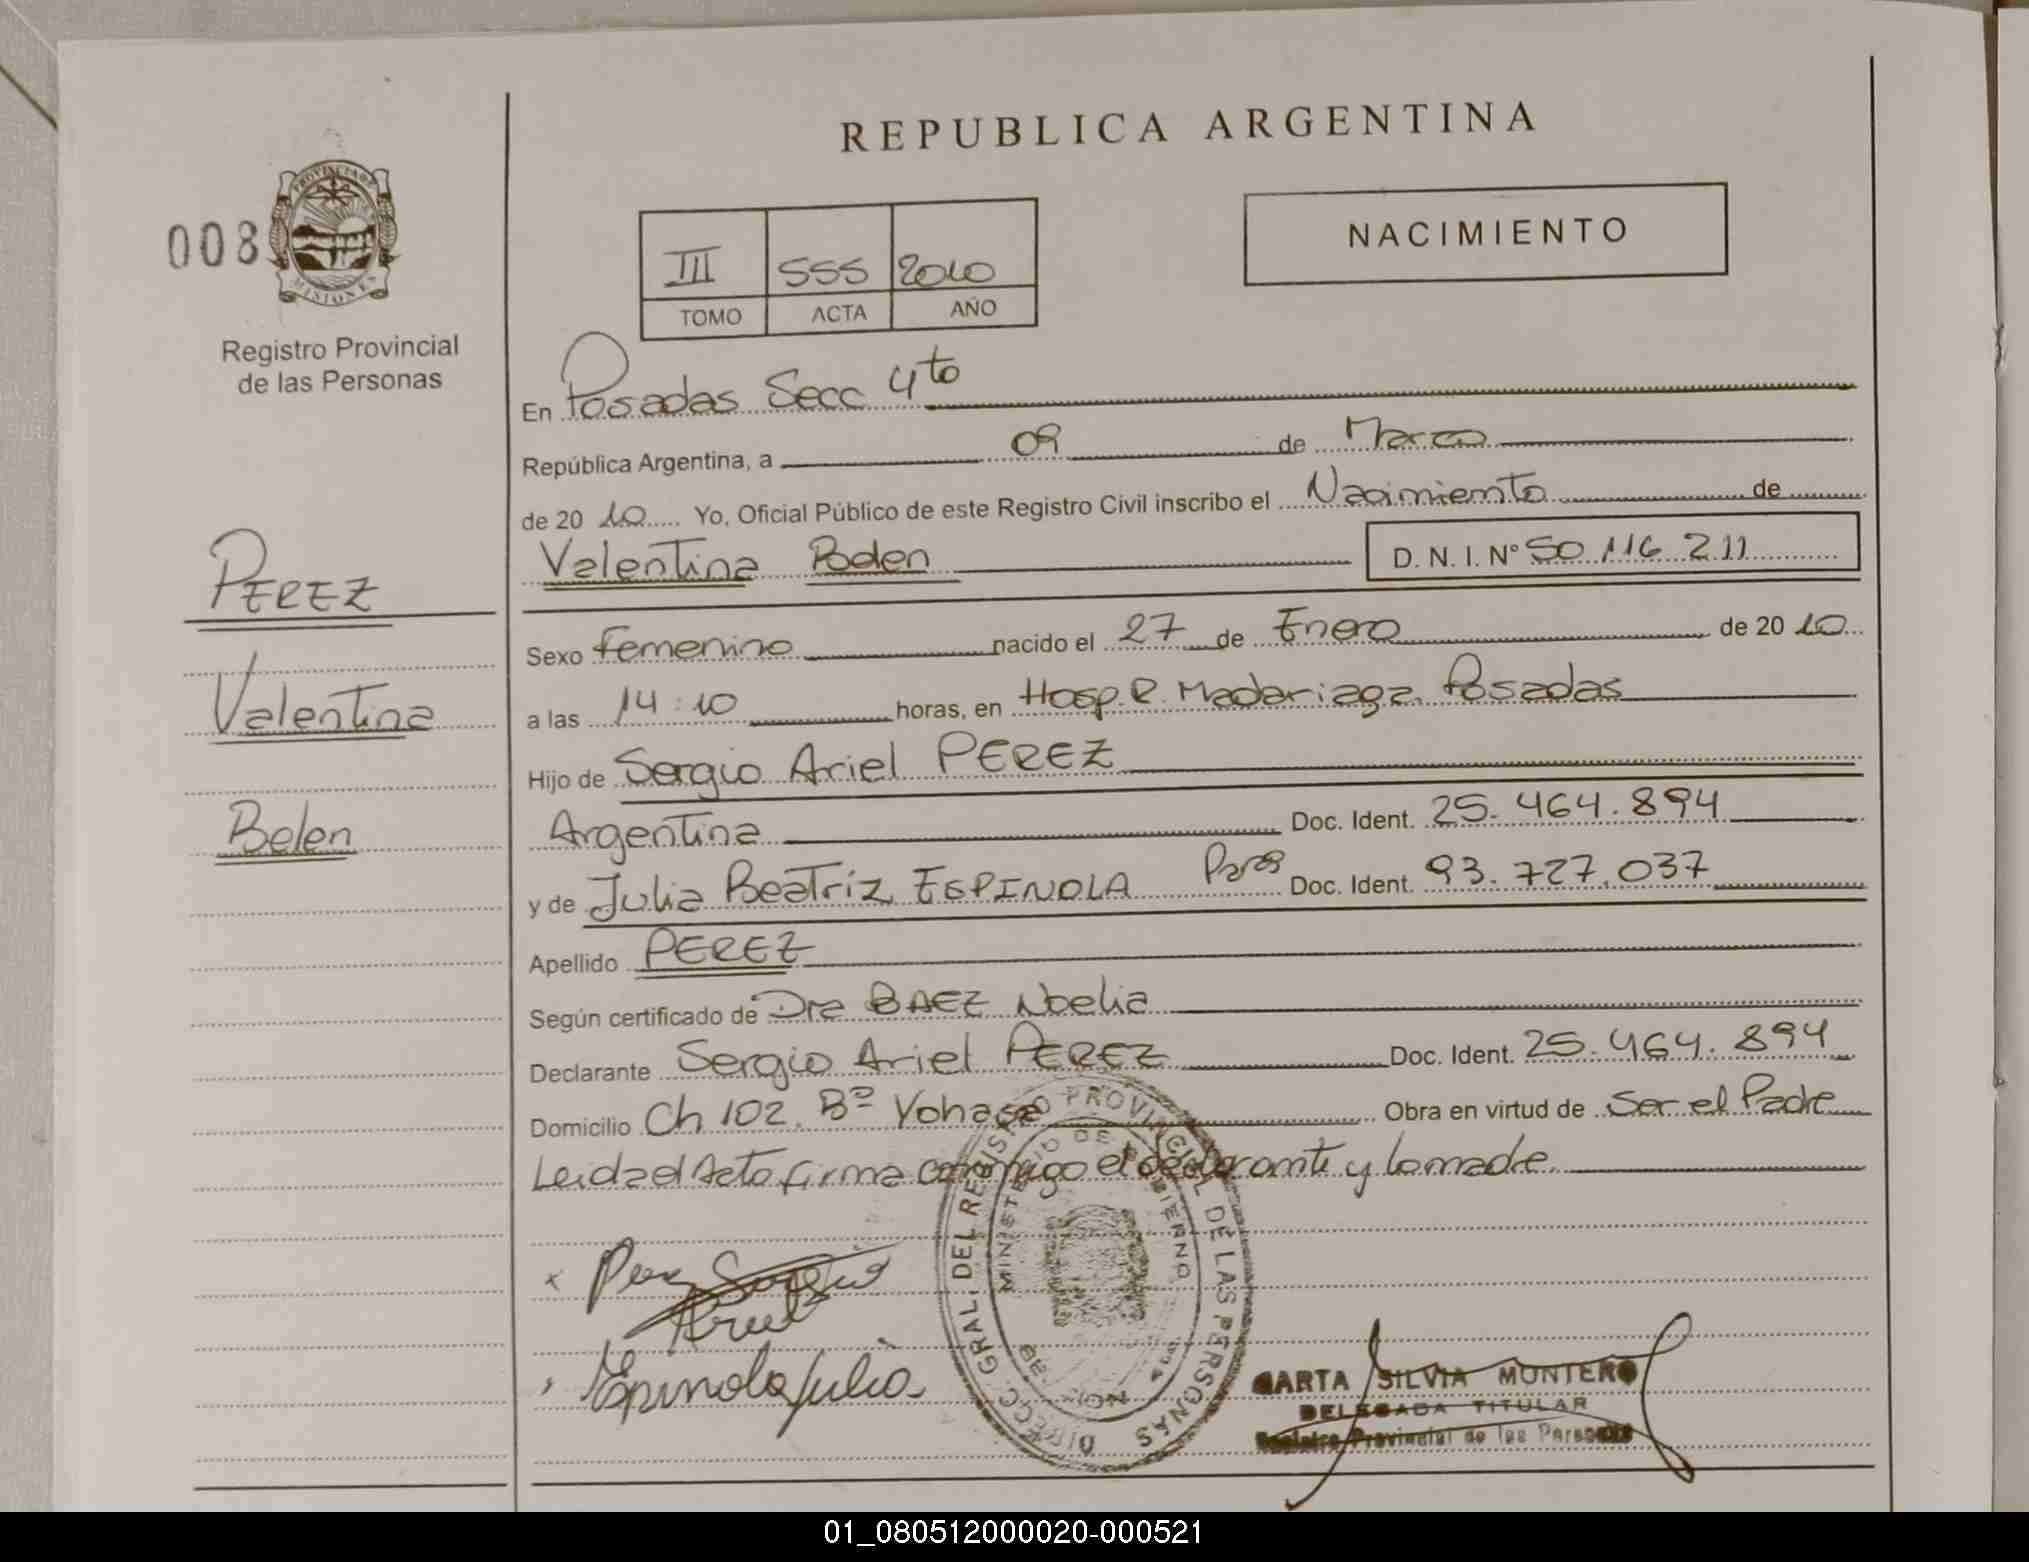 REPUBLICA ARGENTINA
008
PROVINCIA DE
MISIONES
Registro Provincial
de las Personas
III 555 2010
TOMO ACTA AÑO
NACIMIENTO
PEREZ
Valentina
Belen
En Posadas Secc 4to
República Argentina, a 09 de Marzo
de 2010 Yo, Oficial Público de este Registro Civil inscribo el Nacimiento de
Valentina Belen D. N. I. N° 50.116.211
Sexo Femenino nacido el 27 de Enero de 2010
a las 14:10 horas, en Hosp. R. Madariaga. Posadas
Hijo de Sergio Ariel PEREZ
Argentina Doc. Ident. 25.464.894
y de Julia Beatriz ESPINOLA Doc. Ident. 93.727.037
Apellido PEREZ
Según certificado de Dra BAEZ Noelia
Declarante Sergio Ariel PEREZ Doc. Ident. 25.464.894
Domicilio Ch 102. Bº Yohasa Obra en virtud de Ser el Padre
Leida el Acta firma conmigo el declarante y la madre
x Perez Sergio
Ariel
Espinola Julia
DIRECC. GRAL. DEL REGISTRO PROVINCIAL DE LAS PERSONAS
MINISTERIO DE GOBIERNO
MARTA SILVIA MONTERO
DELEGADA TITULAR
Registro Provincial de las Personas
01_080512000020-000521